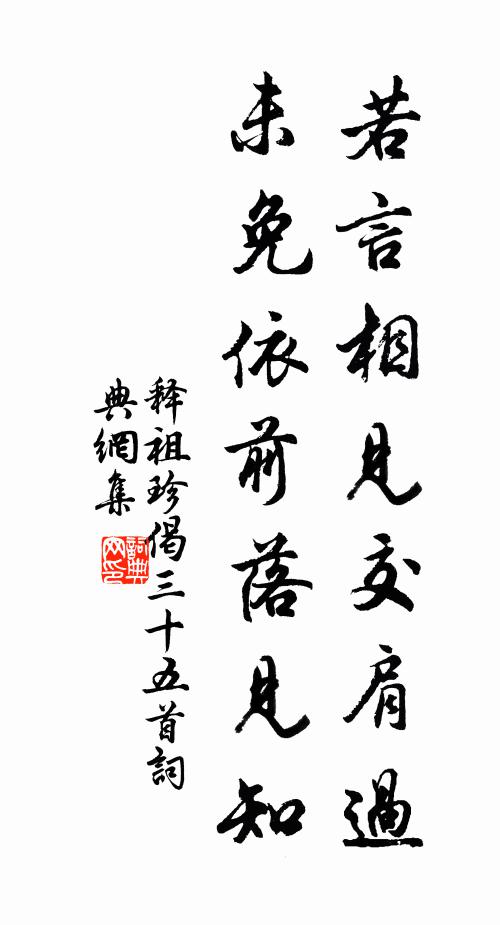 若言相見交肩過
未免依前落見知
释祖珍偈三十五首詞
典網集
詞典
网印